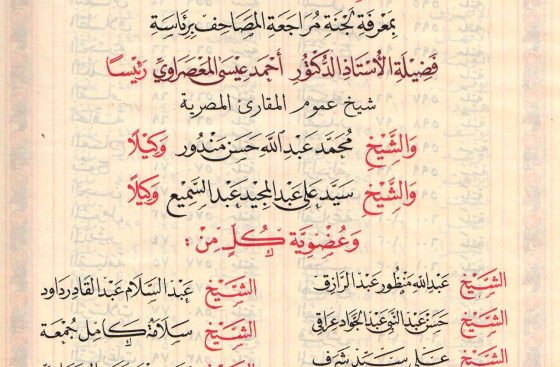 بِمَعْرِفَةِ لَجْنَةِ مُرَاجَعَةِ المَصَاحِفِ بِرِئَاسَةِ
فَضِيلَةِ الأُسْتَاذِ الدُّكْتُورِ أَحْمَد عِيسَى المَعْصَرَاوِي رَئِيسًا
شيخ عموم المقارئ المصرية
وَالشَّيْخِ مُحَمَّد عَبْدِ اللَّه حَسَن مَنْدُور وَكِيلًا
وَالشَّيْخِ سَيِّد عَلِي عَبْدِ المَجِيد عَبْدِ السَّمِيعِ وَكِيلًا
وَعُضْوِيَّةِ كُلٍّ مِنْ :
الشَّيْخِ عَبْدِ اللَّه مَنْظُور عَبْدِ الرَّازِق الشَّيْخِ عَبْدِ السَّلَام عَبْدِ القَادِر دَاوُد
الشَّيْخِ حَسَن عَبْدِ النَّبِي عَبْدِ الجَوَاد عِرَاقِي الشَّيْخِ سَلَامَة كَامِل جُمْعَة
الشَّيْخِ عَلِي سَيِّد شَرَف الشَّيْخِ